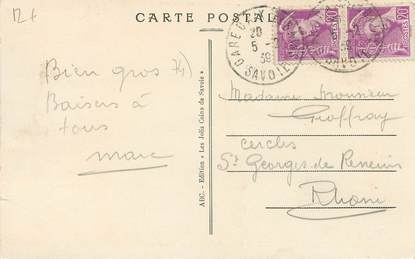 CARTE POSTALE
Bien gros
Baisers à
tous
Marc
ABC. - Edition "Les Jolis Coins de Savoie"
GARE D'
20
5
39
SAVOIE
Madame Monsieur
Geoffray
cercles
St Georges de Reneins
Rhône